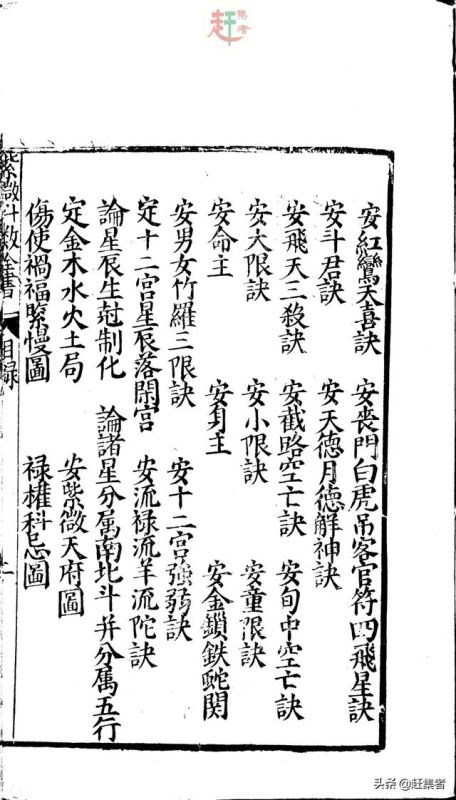 赶集者
安紅鸞天喜訣　安喪門白虎吊客官符四飛星訣
安斗君訣　安天德月德解神訣
安飛天三殺訣　安截路空亡訣　安旬中空亡訣
安大限訣　安小限訣　安童限訣
安命主　安身主　安金鎖鉄蛇関
安男女竹羅三限訣　安十二宮強弱訣
定十二宮星辰落閑宮　安流禄流羊流陀訣
論星辰生尅制化　論諸星分属南北斗并分属五行
定金木水火土局　安紫微天府圖
傷使禍福緊慢圖　禄權科忌圖
紫微斗数全書　目録
头条 @赶集者